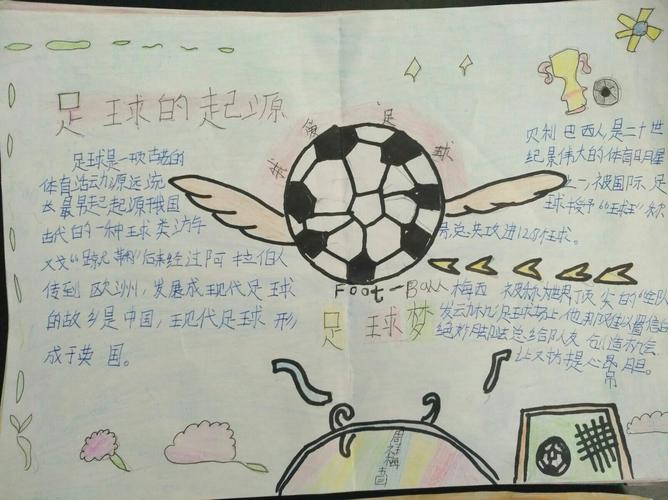 足球的起源
足球是一项古老的
体育活动源远流
长最早起起源于我国
古代的一种球类游
戏"蹴鞠"后来经过阿拉伯人
传到欧洲,发展成现代足球
的故乡是中国,现代足球形
成于英国。
足
球
Foot-Ball
足球梦
贝利巴西人,是二十世
纪最伟大的体育明星
之一,被国际足
球授予"球王"称
号,总共攻进128
球。
梅西被称为世界顶尖的
足球场上,他
总给队友创造机会
让对方提心吊胆。